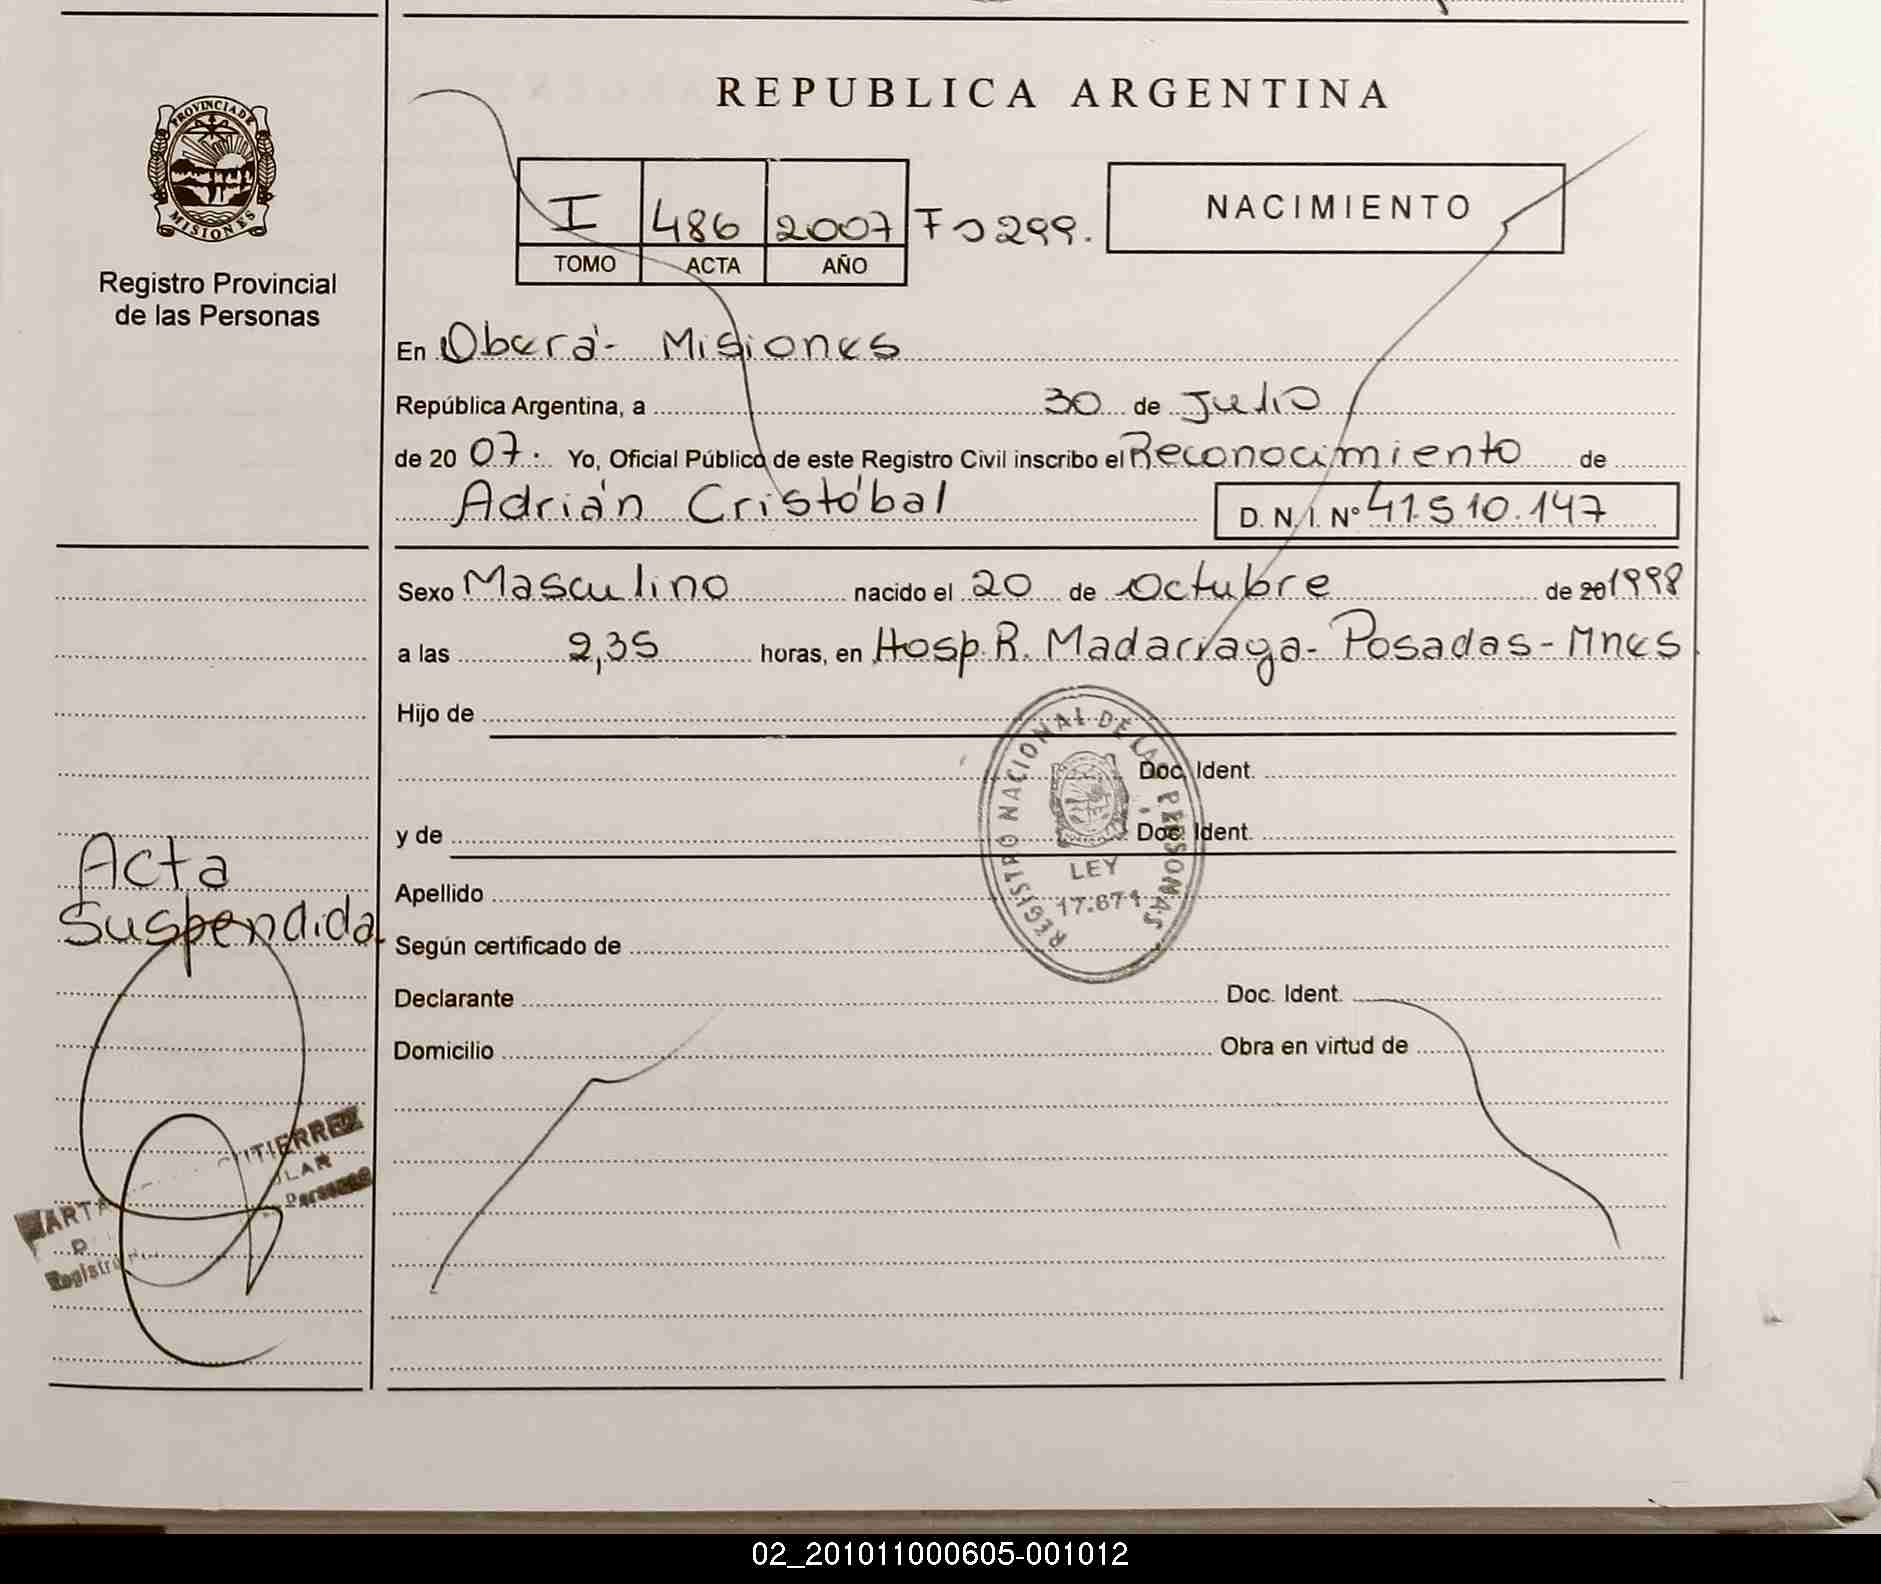 REPUBLICA ARGENTINA
PROVINCIA DE
MISIONES
Registro Provincial
de las Personas
I 486 2007 Fo 299.
TOMO ACTA AÑO
NACIMIENTO
En Oberá - Misiones
República Argentina, a 30 de Julio
de 20 07. Yo, Oficial Público de este Registro Civil inscribo el Reconocimiento de
Adrián Cristóbal D. N. I. N° 41.510.147
Sexo Masculino nacido el 20 de Octubre de 20 1998
a las 2,35 horas, en Hosp. R. Madariaga - Posadas - Mnes
Hijo de
Doc. Ident.
y de Doc. Ident.
Apellido
Según certificado de
Declarante Doc. Ident.
Domicilio Obra en virtud de
REGISTRO NACIONAL DE LAS PERSONAS
LEY
17.671
Acta
Suspendida
Registro
02_201011000605-001012